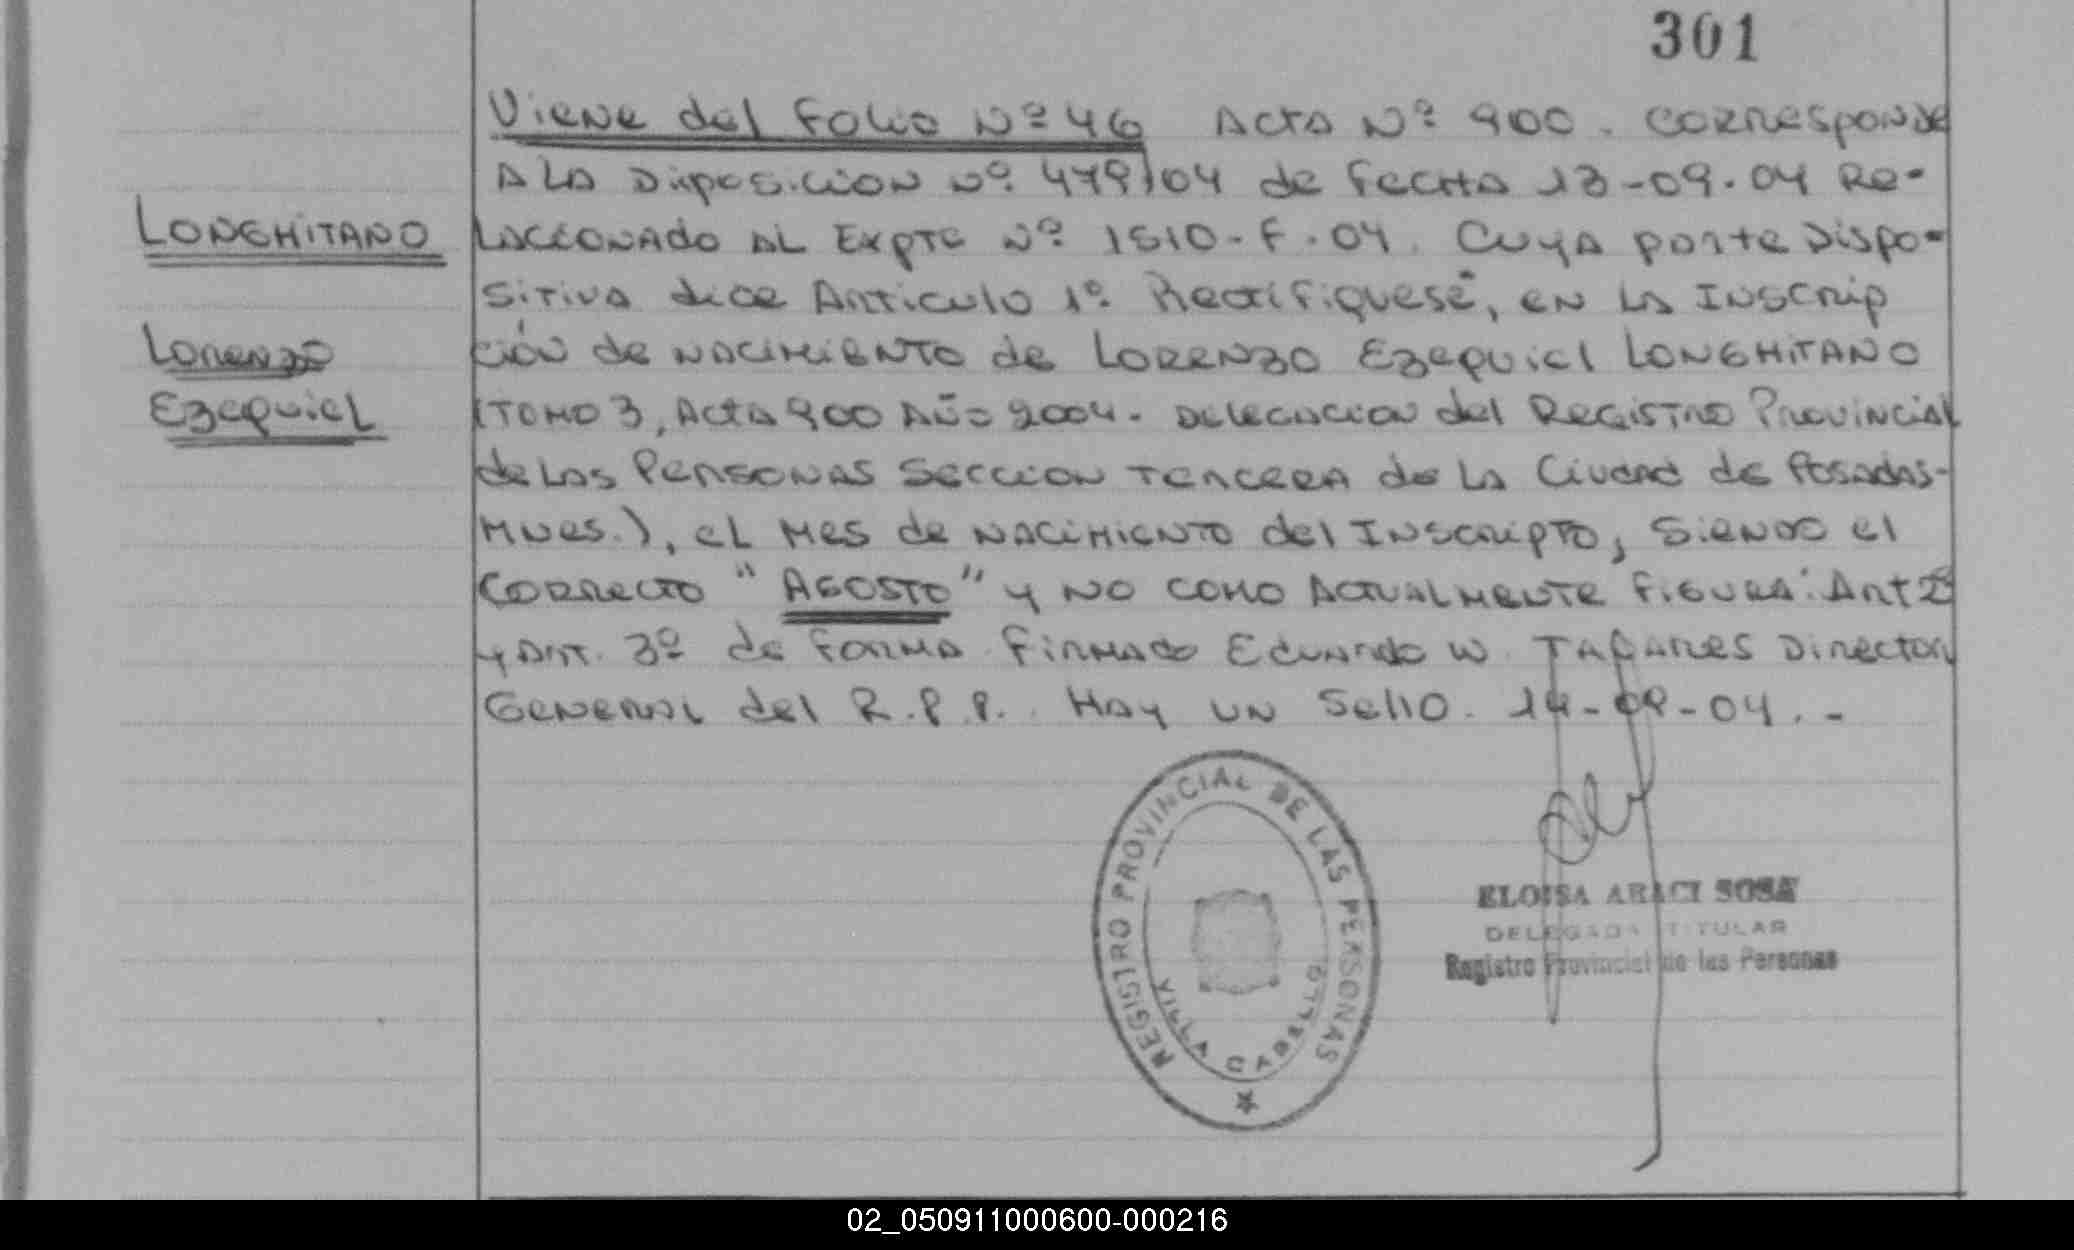 301
Viene del Folio Nº 46 Acta Nº 900. Corresponde
A la Disposicion Nº 479/04 de fecha 13-09-04 Re-
LONGHITANO
lacionado al Expte Nº 1510-F-04. Cuya parte Dispo-
sitiva dice Articulo 1º Rectifiquese, en la Inscrip
Lorenzo
ción de nacimiento de Lorenzo Ezequiel LONGHITANO
Ezequiel
(Tomo 3, Acta 900 Año 2004 - Delegacion del Registro Provincial
de las Personas Seccion Tercera de la Ciudad de Posadas-
Mnes.), el mes de nacimiento del Inscripto, siendo el
correcto "AGOSTO" y no como actualmente figura. Art 2º
y Art. 3º de forma. Firmado Eduardo W. Director
General del R.P.P. Hay un sello. 14-09-04.-
REGISTRO PROVINCIAL DE LAS PERSONAS
VILLA CABELLO
ELOISA ARACI SOSA
DELEGADA TITULAR
Registro Provincial de las Personas
02_050911000600-000216